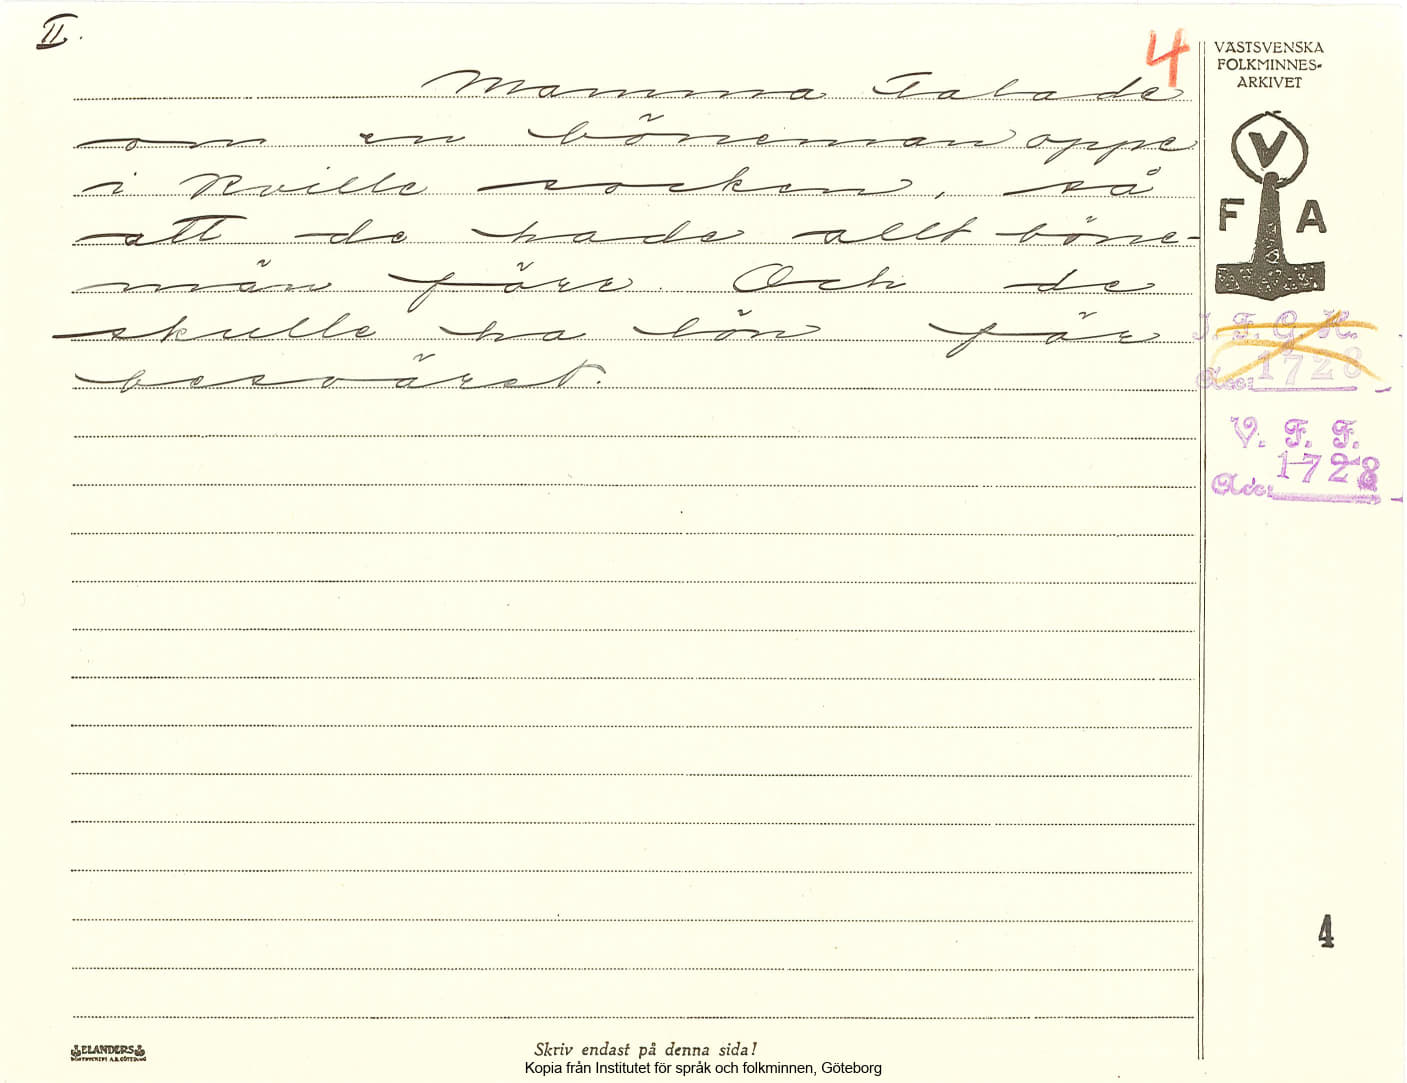 II.
4
VÄSTSVENSKA
FOLKMINNES-
ARKIVET
V
F A
Mamma talade
om en böneman oppe
i Kville socken, så
att de hade allt böne-
män före. Och de
skulle ha bön för
besväret.
I. F. G. H.
Acc: 1728
V. F. F.
Acc: 1728
4
ELANDERS
Skriv endast på denna sida!
Kopia från Institutet för språk och folkminnen, Göteborg